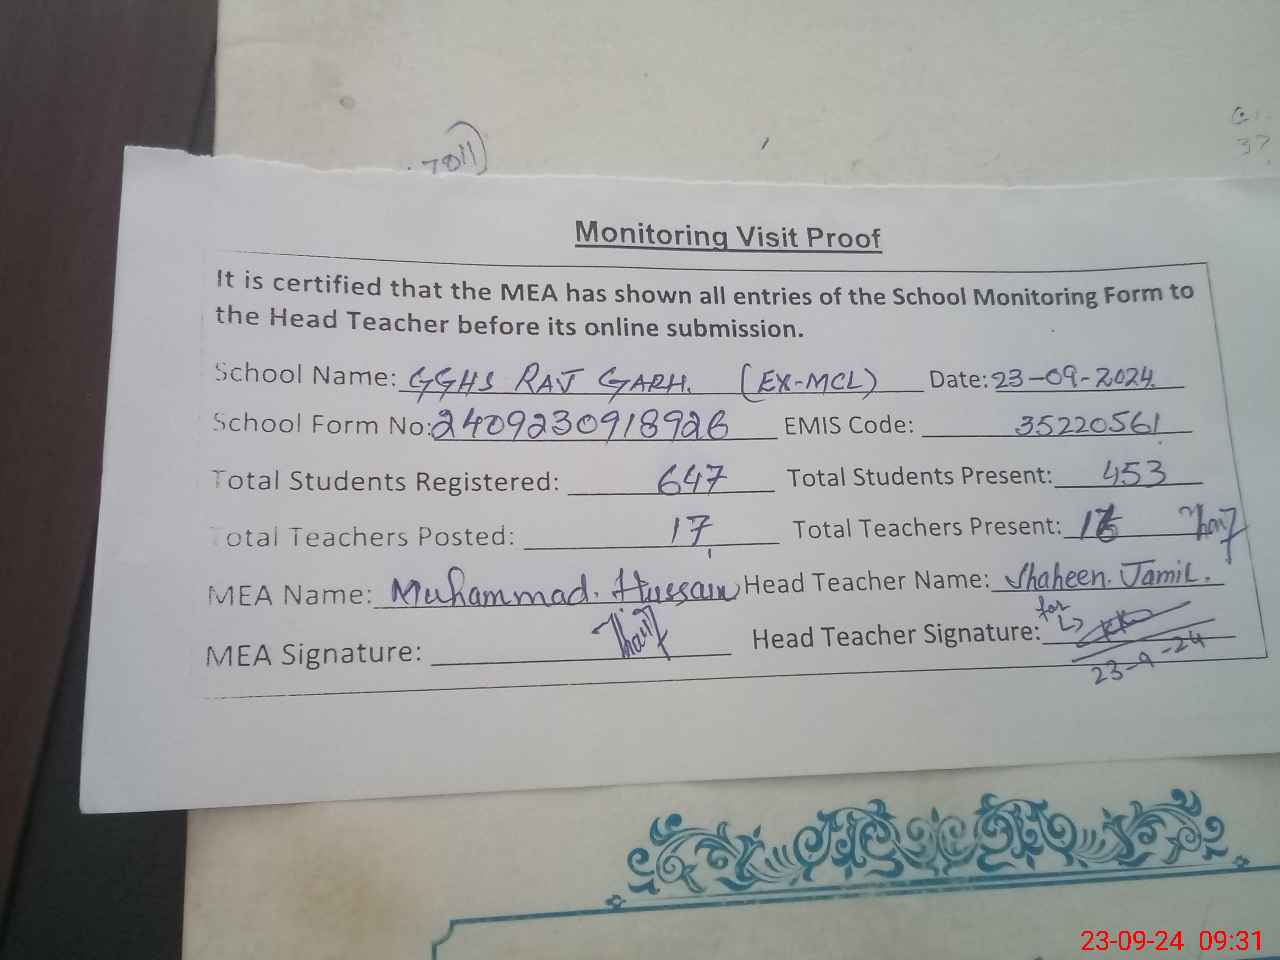 7011)
37
Monitoring Visit Proof
It is certified that the MEA has shown all entries of the School Monitoring Form to
the Head Teacher before its online submission.
School Name: GGHS RAJ GARH. (EX-MCL) Date: 23-09-2024.
School Form No: 2409230918926 EMIS Code: 35220561
Total Students Registered: 647 Total Students Present: 453
Total Teachers Posted: 17 Total Teachers Present: 16
MEA Name: Muhammad. Hussain Head Teacher Name: Shaheen. Jamil.
MEA Signature: Head Teacher Signature: for
23-9-24
23-09-24 09:31